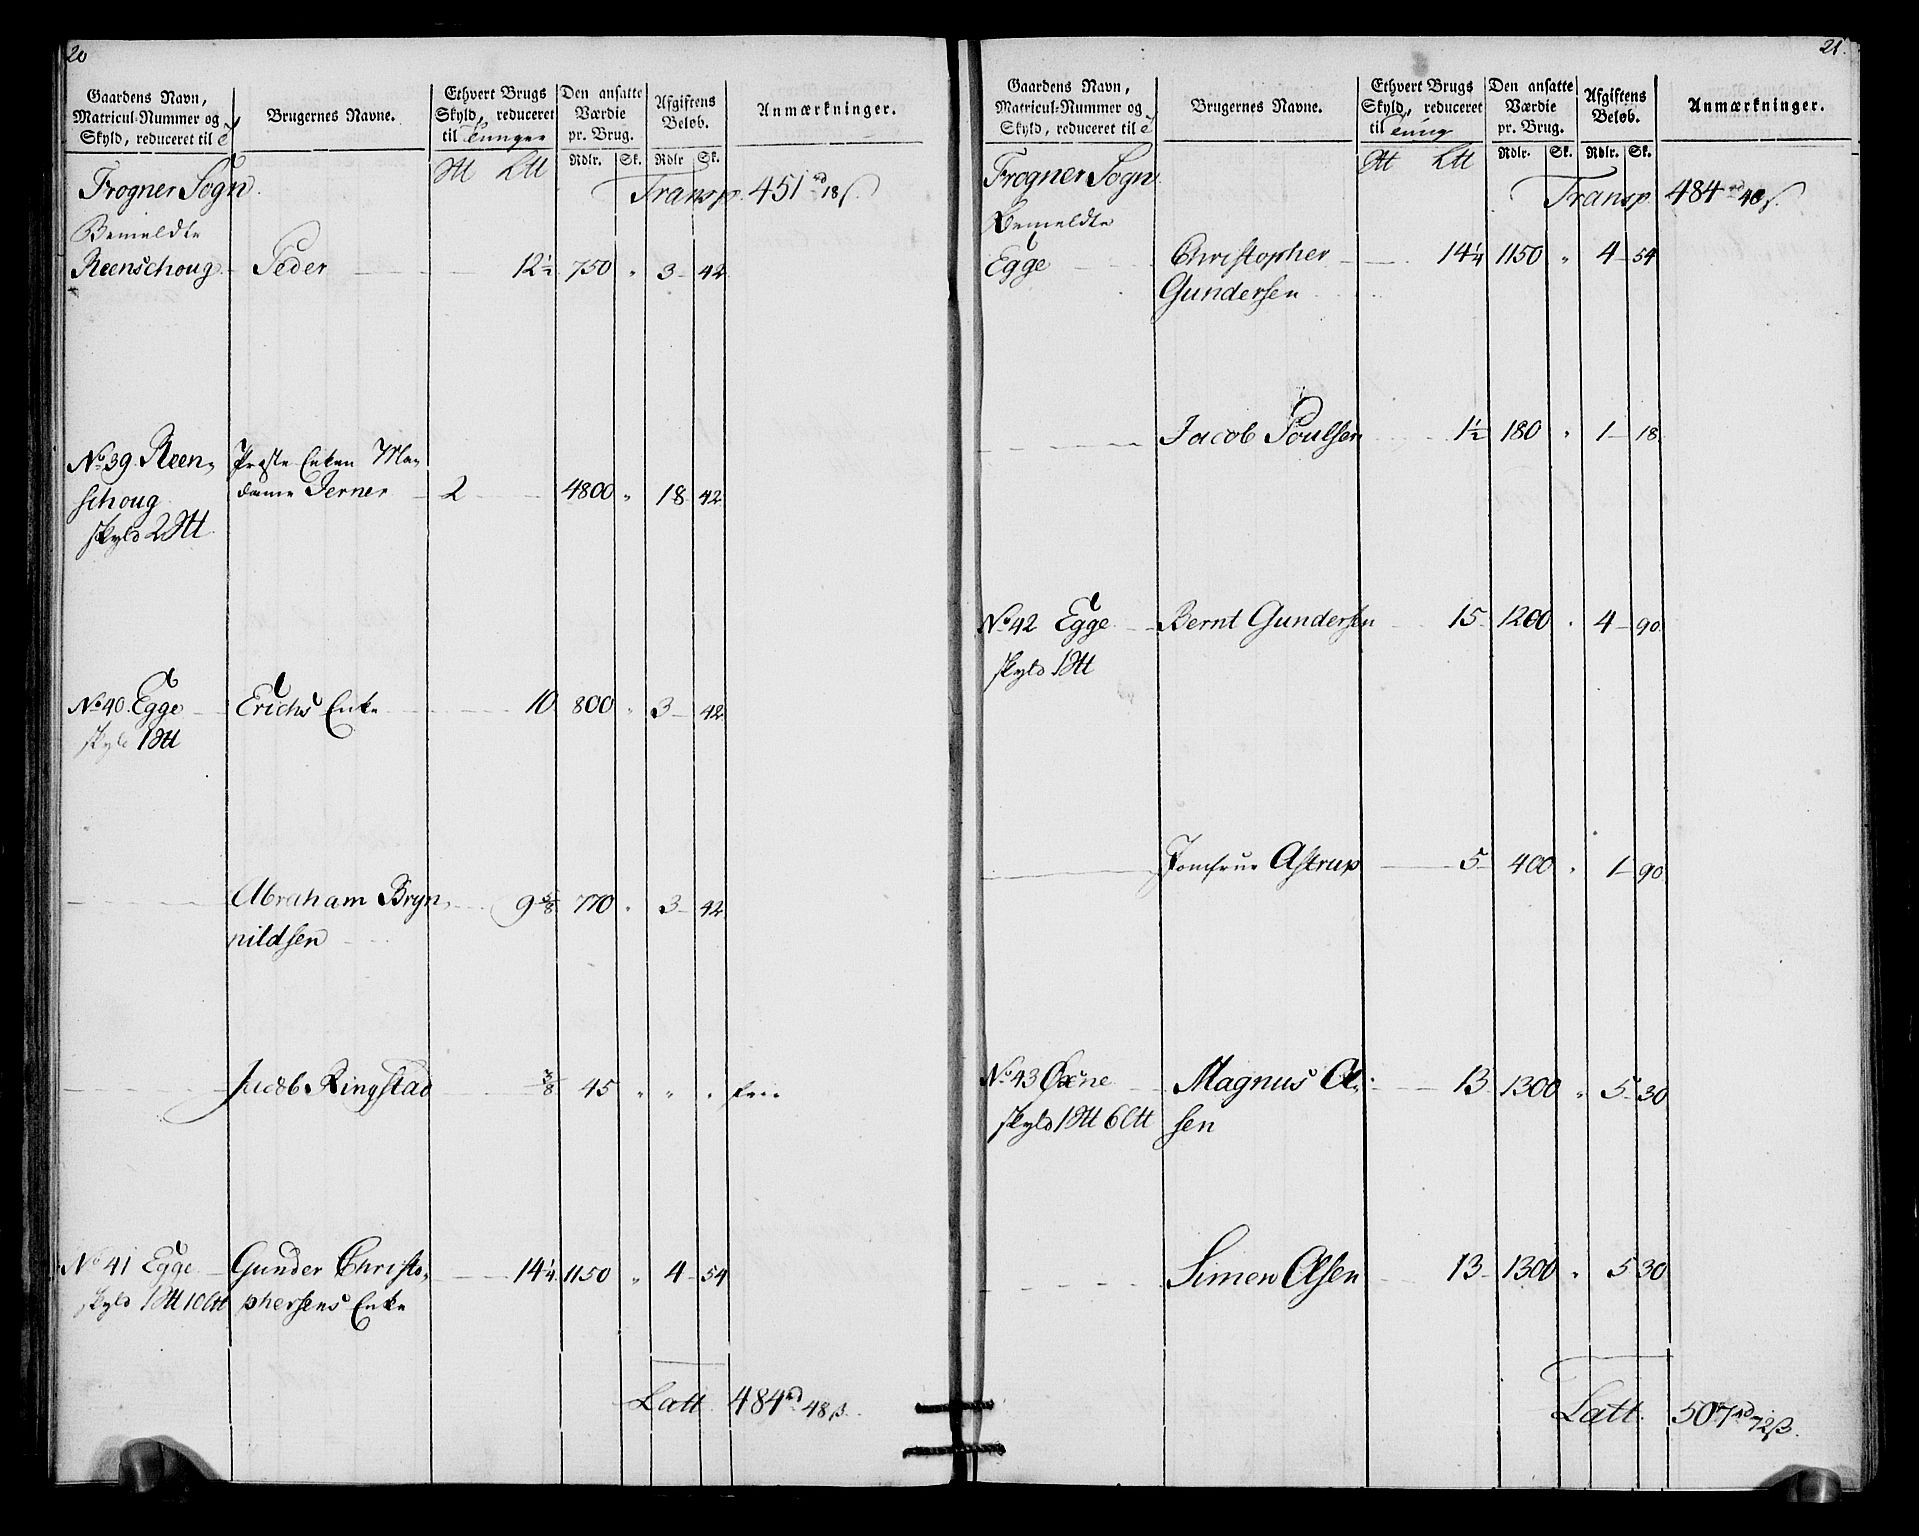 20
Gaardens Navn,
Matricul-Nummer og
Skyld, reduceret til
Brugernes Navne.
Ethvert Brugs
Skyld, reduceret
til Tunger
Den ansatte
Værdie
pr. Brug.
Rdlr. Sk.
Afgiftens
Beløb.
Rdlr Sk.
Anmærkninger.
Frogner Sogn
Transp. 451 rd 18 ß
Bemeldte
Reenschoug Peder 12½ 750 " 3 42
No 39 Reen-
schoug
skyld 2 Stt
Præste Enken Ma-
dame Jerner 2 4800 " 18 42
No 40 Egge Erichs Enke 10 800 " 3 42
skyld 1 Stt
Abraham Bryn- 9 5/8 770 " 3 42
nildsen
Jacob Ringstad 3/8 45 " " " frie
No 41 Egge Gunder Christo- 14¼ 1150 " 4 54
skyld 1 Stt 10 Ltt phersens Enke
Latt. 484 rd 48 ß
21.
Gaardens Navn,
Matricul-Nummer og
Skyld, reduceret til
Brugernes Navne.
Ethvert Brugs
Skyld, reduceret
til Tung
Den ansatte
Værdie
pr. Brug.
Rdlr. Sk.
Afgiftens
Beløb.
Rdlr. Sk.
Anmærkninger.
Frogner Sogn
Transp 484 rd 48 ß
Bemeldte
Egge Christopher 14¼ 1150 " 4 54
Gundersen
Jacob Poulsen 1½ 180 " 1 18
No 42 Egge Bernt Gundersen 15 1200 " 4 90
skyld 1 Stt
Jomfrue Astrup 5 400 " 1 90
No 43 Øxne Magnus Ol- 13 1300 " 5 30
skyld 1 Stt 6 Ltt sen
Simen Olsen 13 1300 " 5 30
Latt. 507 rd 72 ß.